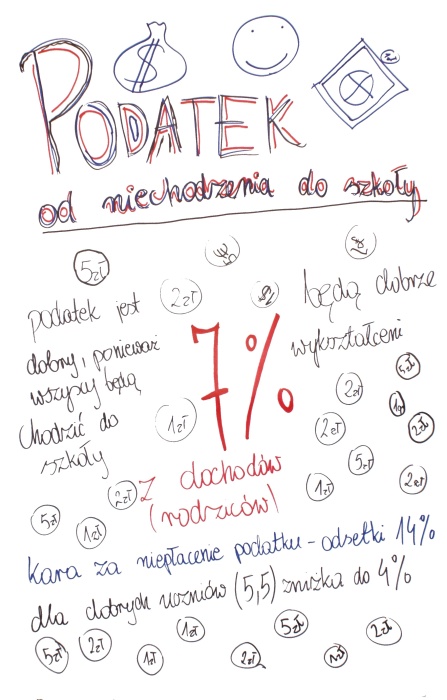 PODATEK
od niechodzenia do szkoły
5zł
2zł
podatek jest
dobry, ponieważ
wszyscy będą
chodzić do
szkoły
będą dobrze
wykształceni
7%
z dochodów
(rodziców)
5zł
2zł
1zł
1zł
2zł
2zł
5zł
1zł
2zł
5zł
1zł
2zł
kara za niepłacenie podatku - odsetki 14%
dla dobrych uczniów (5,5) zniżka do 4%
5zł
2zł
1zł
1zł
2zł
5zł
1zł
2zł